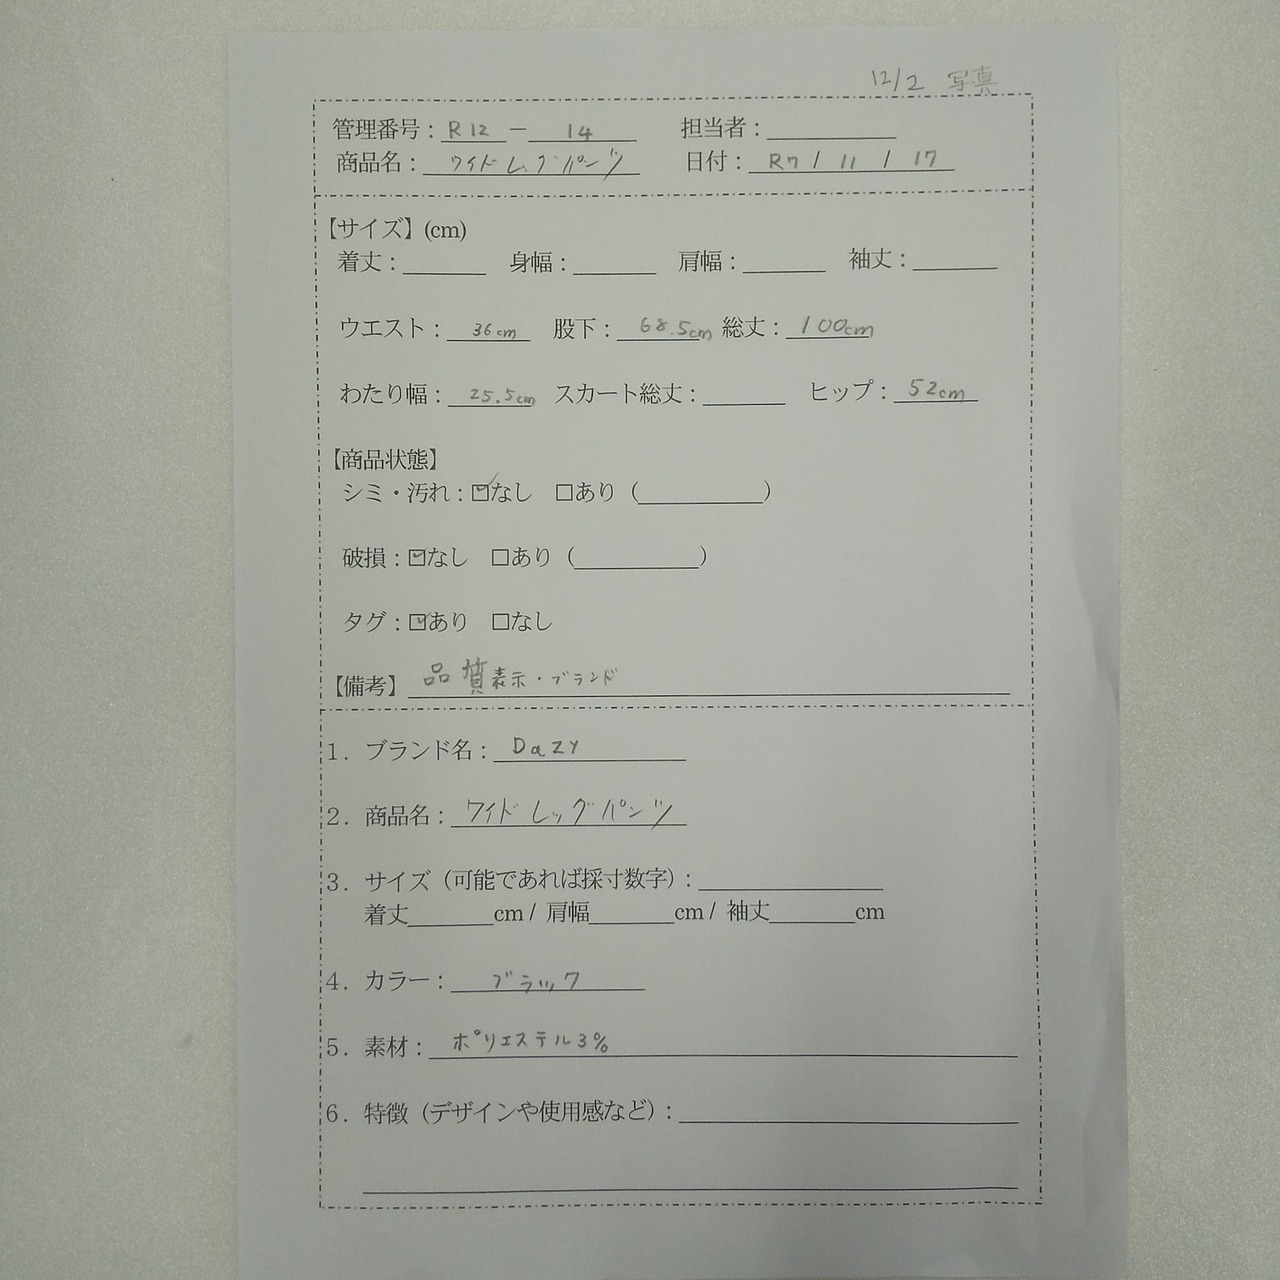 12/2 写真
管理番号：R12 － 14 担当者：
商品名：ワイドレッグパンツ 日付：R7 / 11 / 17
【サイズ】(cm)
着丈： 身幅： 肩幅： 袖丈：
ウエスト：36cm 股下：68.5cm 総丈：100cm
わたり幅：25.5cm スカート総丈： ヒップ：52cm
【商品状態】
シミ・汚れ：☑なし □あり（ ）
破損：☑なし □あり（ ）
タグ：☑あり □なし
【備考】品質表示・ブランド
1．ブランド名：DaZY
2．商品名：ワイドレッグパンツ
3．サイズ（可能であれば採寸数字）：
着丈 cm / 肩幅 cm / 袖丈 cm
4．カラー：ブラック
5．素材：ポリエステル3%
6．特徴（デザインや使用感など）：